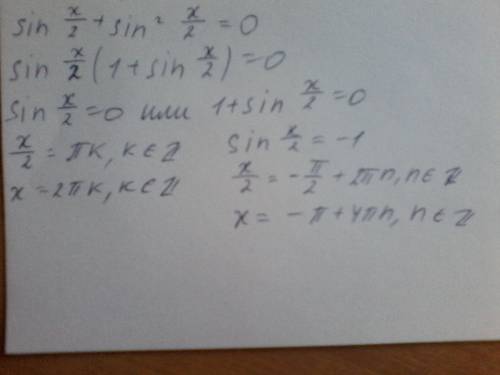 sin x/2 + sin² x/2 = 0
sin x/2 (1 + sin x/2) = 0
sin x/2 = 0 или 1 + sin x/2 = 0
x/2 = πk, k ∈ ℤ
x = 2πk, k ∈ ℤ
sin x/2 = -1
x/2 = -π/2 + 2πn, n ∈ ℤ
x = -π + 4πn, n ∈ ℤ